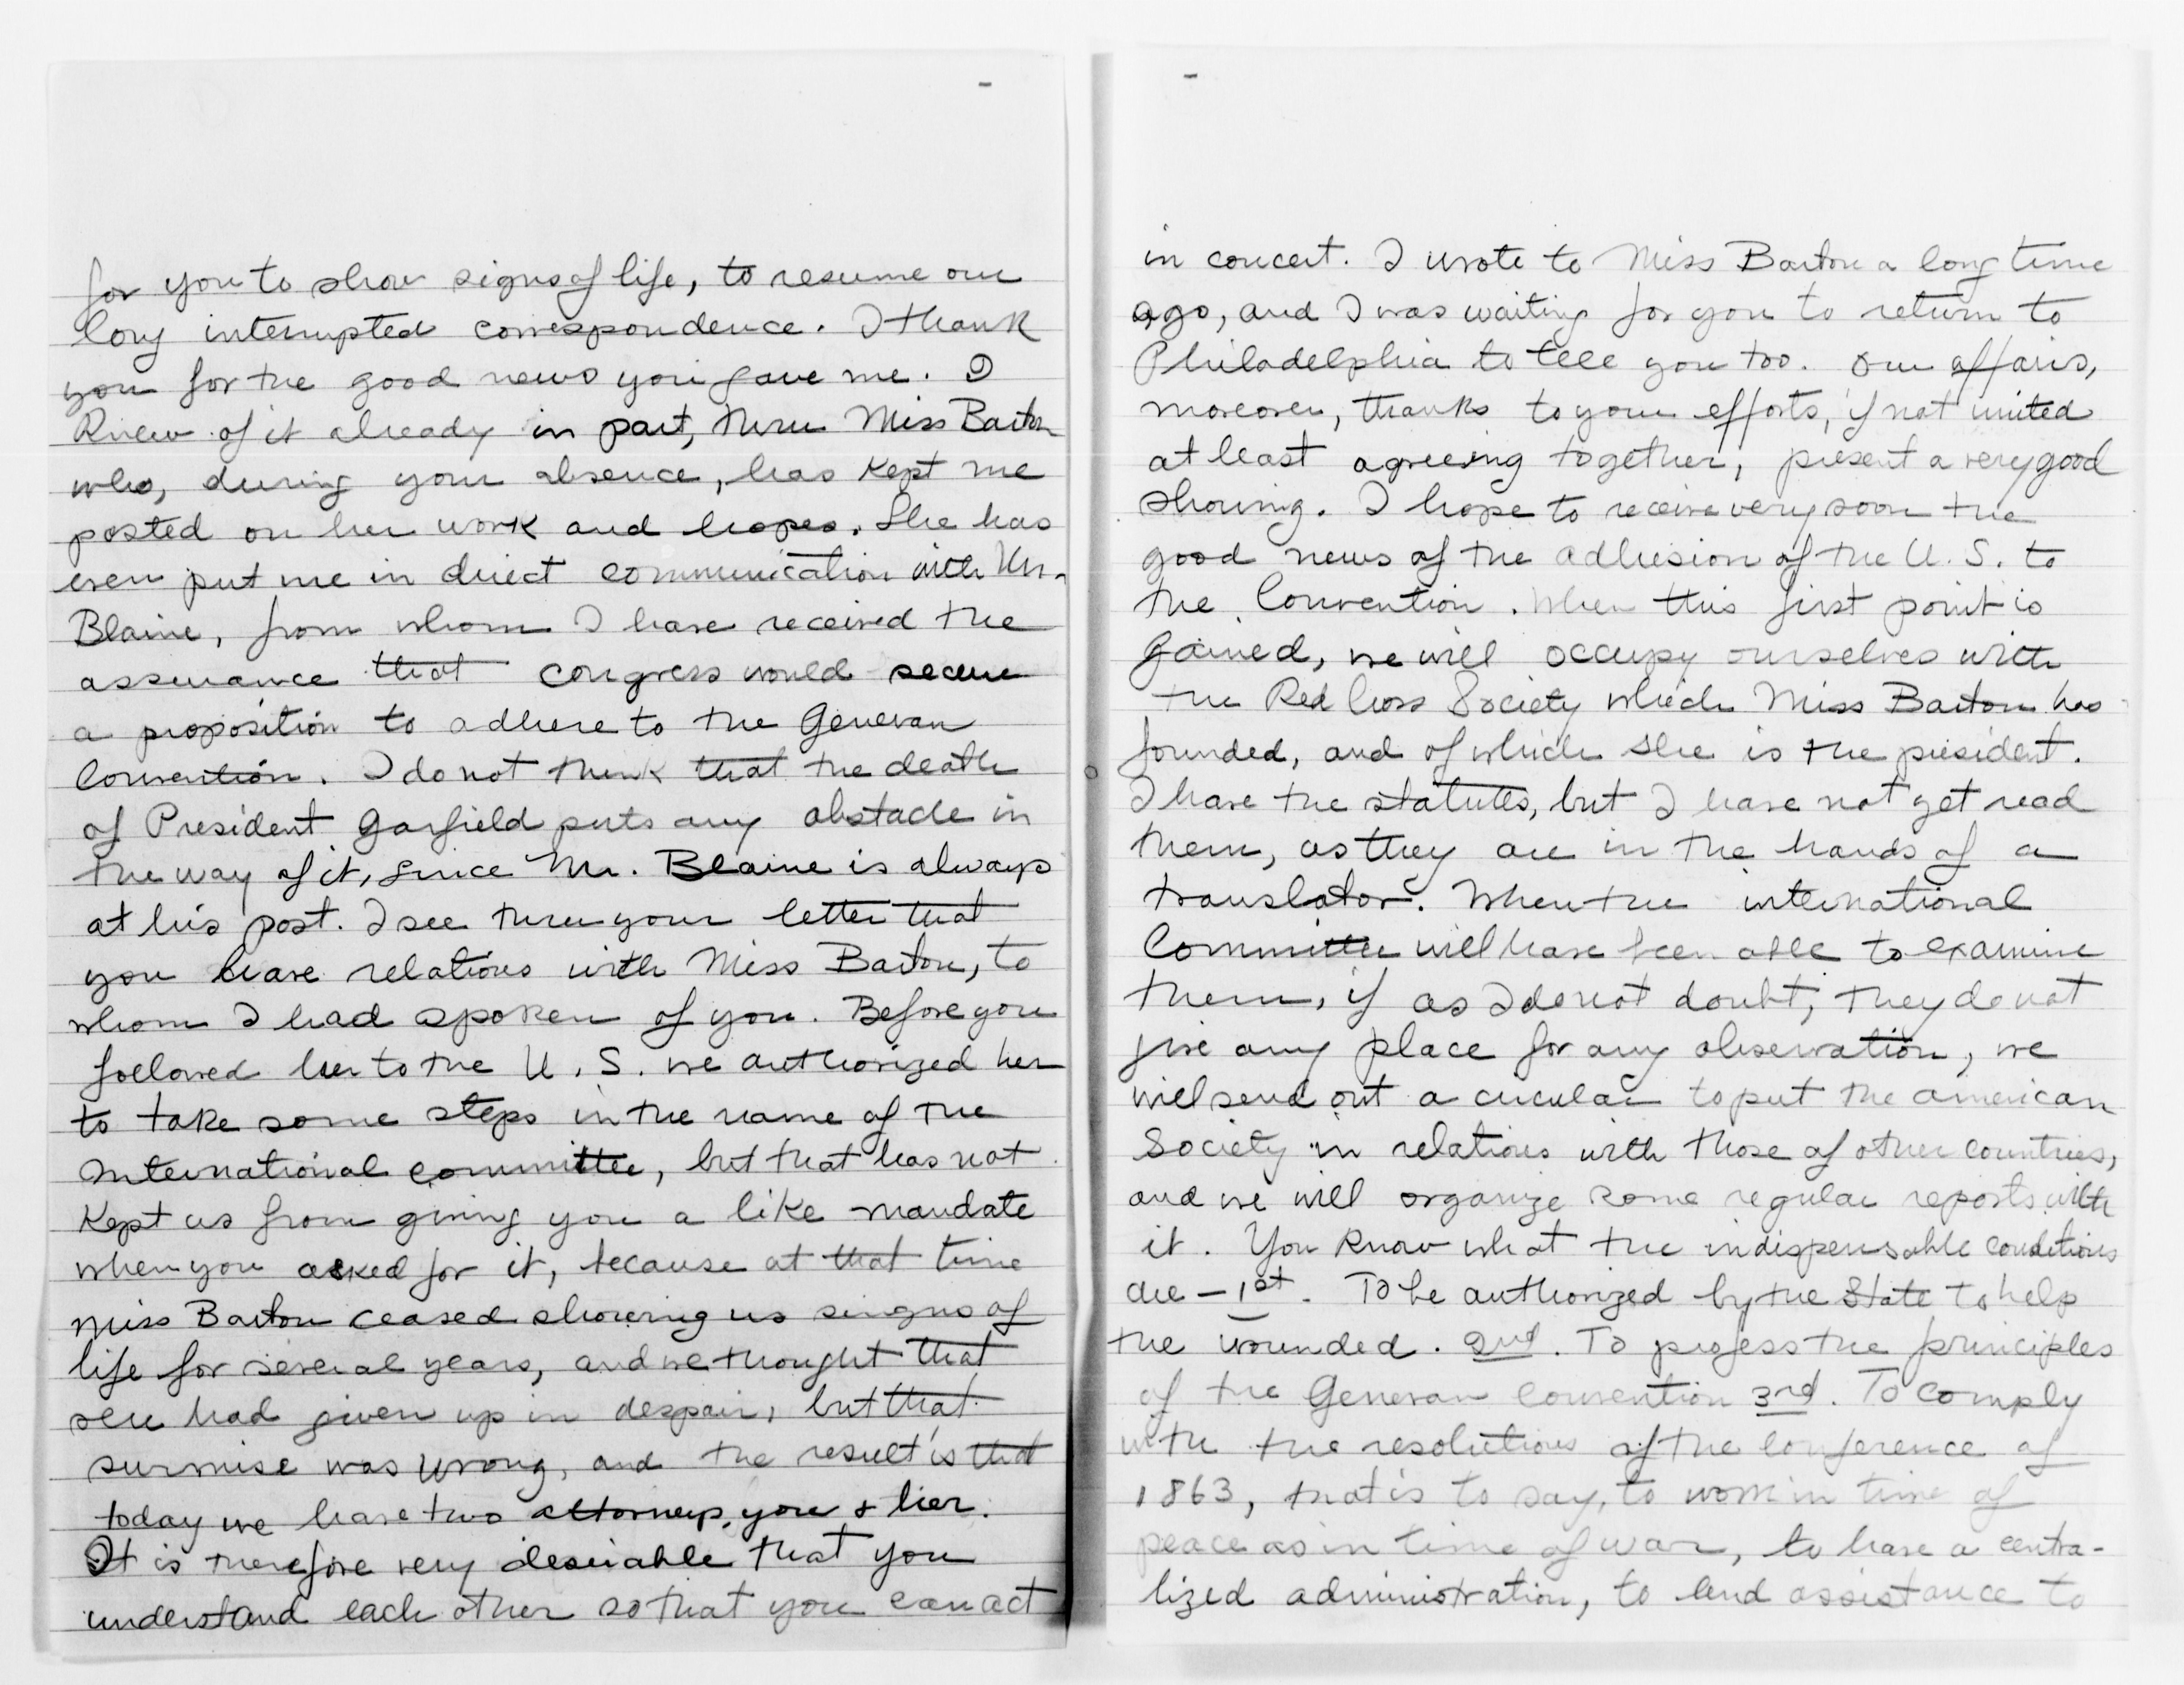 for you to show signs of life, to resume our
long interrupted correspondence. I thank
you for the good news you gave me. I
knew of it already in part, thru Miss Barton
who, during your absence, has kept me
posted on her work and hopes. She has
even put me in direct communication with Mr.
Blaine, from whom I have received the
assurance that congress would secure
a proposition to adhere to the Genevan
Convention. I do not think that the death
of President Garfield puts any obstacle in
the way of it, since Mr. Blaine is always
at his post. I see thru your letter that
you have relations with Miss Barton, to
whom I had spoken of you. Before you
followed her to the U. S. we authorized her
to take some steps in the name of the
International committee, but that has not
kept us from giving you a like mandate
when you asked for it, because at that time
Miss Barton ceased showing us singns of
life for several years, and we thought that
she had given up in despair, but that
surmise was wrong, and the result is that
today we have two attorneys, you & her.
It is therefore very desirable that you
understand each other so that you can act
in concert. I wrote to Miss Barton a long time
ago, and I was waiting for you to return to
Philadelphia to tell you too. Our affairs,
moreover, thanks to your efforts, if not united
at least agreeing together, present a very good
showing. I hope to receive very soon the
good news of the adhesion of the U. S. to
the Convention. When this first point is
gained, we will occupy ourselves with
the Red Cross Society which Miss Barton has
founded, and of which she is the president.
I have the statutes, but I have not yet read
them, as they are in the hands of a
translator. When the international
Committee will have been able to examine
them, if as I do not doubt, they do not
give any place for any observation, we
will send out a circular to put the american
Society in relations with those of other countries,
and we will organize some regular reports with
it. You know what the indispensable conditions
are - 1st. To be authorized by the State to help
the wounded. 2nd. To profess the principles
of the Genevan Convention 3rd. To comply
with the resolutions of the conference of
1863, that is to say, to work in time of
peace as in time of war, to have a centra-
lized administration, to lend assistance to